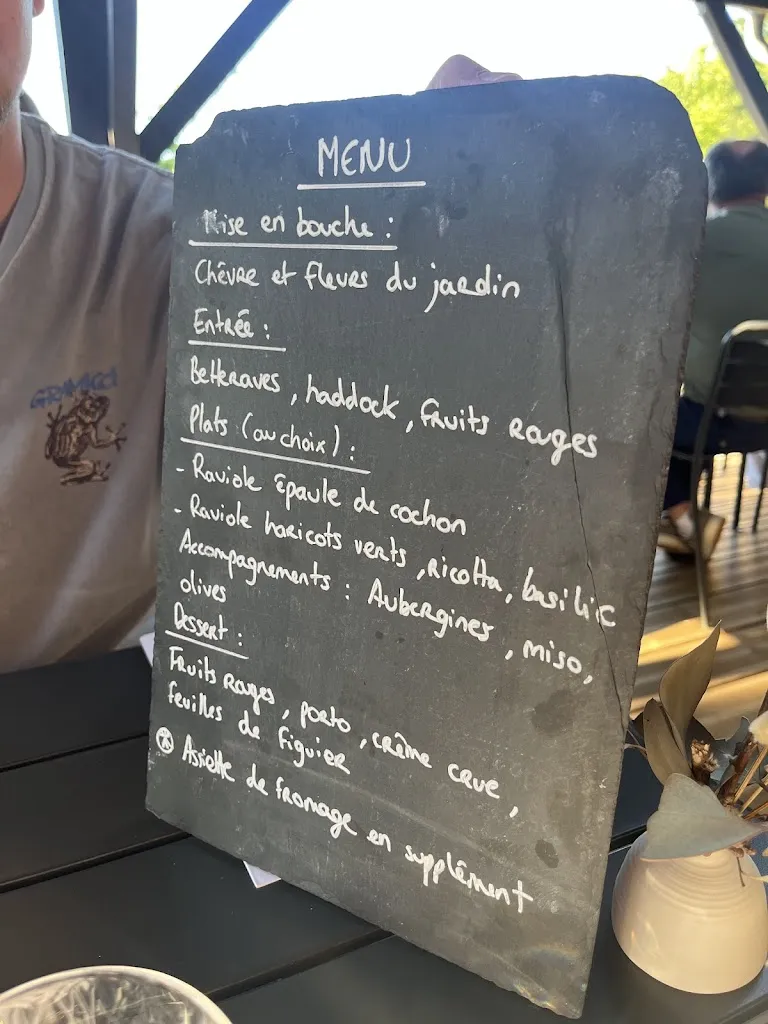 MENU
Mise en bouche :
Chêvre et fleurs du jardin
Entrée :
Betteraves, haddock, fruits rouges
Plats (au choix) :
- Raviole épaule de cochon
- Raviole haricots verts, ricotta, basilic
Accompagnements : Aubergines, miso,
olives
Dessert :
Fruits rouges, porto, crème crue,
feuilles de figuier
Assiette de fromage en supplément
GRAMICCI